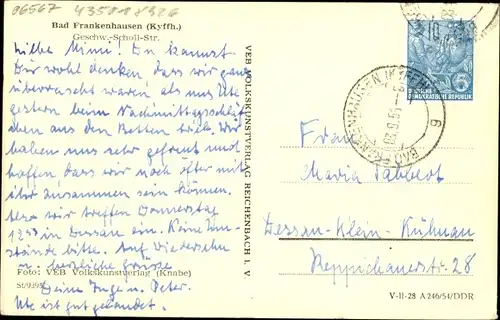 06567 43501 8926
Bad Frankenhausen (Kyffh.)
Geschw.-Scholl-Str.
Liebe Mimi! Du kannst
Dir wohl denken, dass wir ganz
überrascht waren als uns Ute
gestern beim Nachmittagsschläfchen
aus den Betten trieb. Wir
haben uns sehr gefreut und
hoffen dass wir noch öfter mit
ihr zusammen sein können.
Also wir treffen Donnerstag
12 in Dessau ein. Keine Um-
stände bitte. Auf Wiedersehn
u. herzliche Grüße
Foto: VEB Volkskunstverlag (Knabe)
Deine Inge u. Peter.
Ute ist gut gelandet.
VEB VOLKSKUNSTVERLAG REICHENBACH I. V.
DEUTSCHE
DEMOKRATISCHE REPUBLIK
5
BAD FRANKENHAUSEN (KYFFH)
Frau
Maria Tabbert
Dessau-Klein-Kühnau
Reppichauerstr. 28
V-11-28 A 246/54/DDR